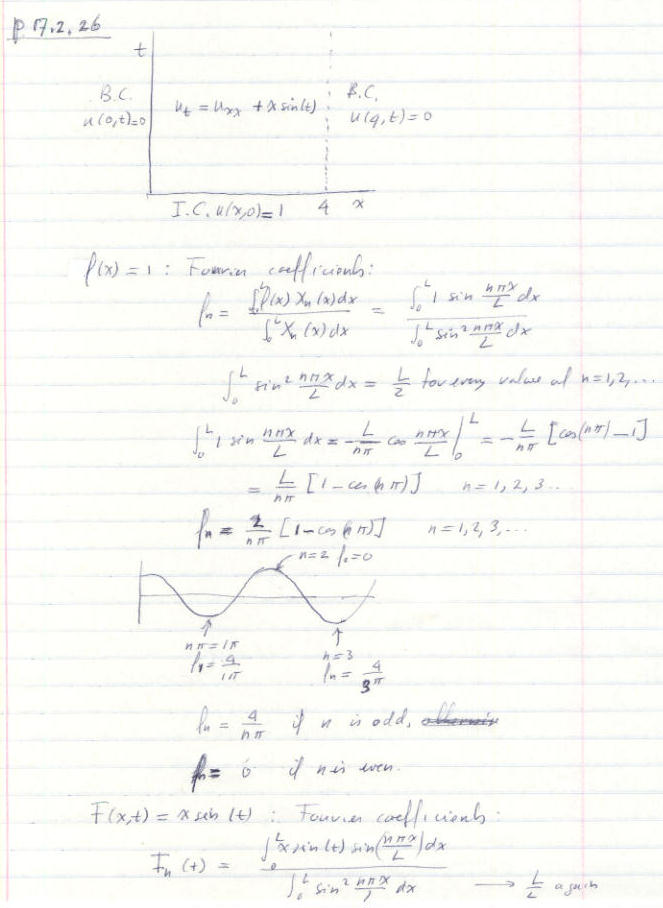 p 17.2.26
t
B.C.
u(0,t)=0
u_t = u_xx + x sin(t)
B.C.
u(4,t)=0
I.C. u(x,0)=1
4
x
f(x) = 1 : Fourier coefficients:
f_n = ∫_0^L f(x) X_n(x)dx / ∫_0^L X_n(x)dx = ∫_0^L 1 sin nπx/L dx / ∫_0^L sin² nπx/L dx
∫_0^L sin² nπx/L dx = L/2 for every value of n=1,2,...
∫_0^L 1 sin nπx/L dx = -L/nπ cos nπx/L |_0^L = -L/nπ [cos(nπ) - 1]
= L/nπ [1 - cos(nπ)] n = 1, 2, 3...
f_n = 2/nπ [1 - cos(nπ)] n = 1, 2, 3, ...
n=2 f_2=0
nπ = 1π
f_1 = 4/1π
n=3
f_n = 4/3π
f_n = 4/nπ if n is odd,
f_n = 0 if n is even.
F(x,t) = x sin(t) : Fourier coefficients:
F_n(t) = ∫_0^L x sin(t) sin(nπx/L)dx / ∫_0^L sin² nπx/L dx → L/2 again